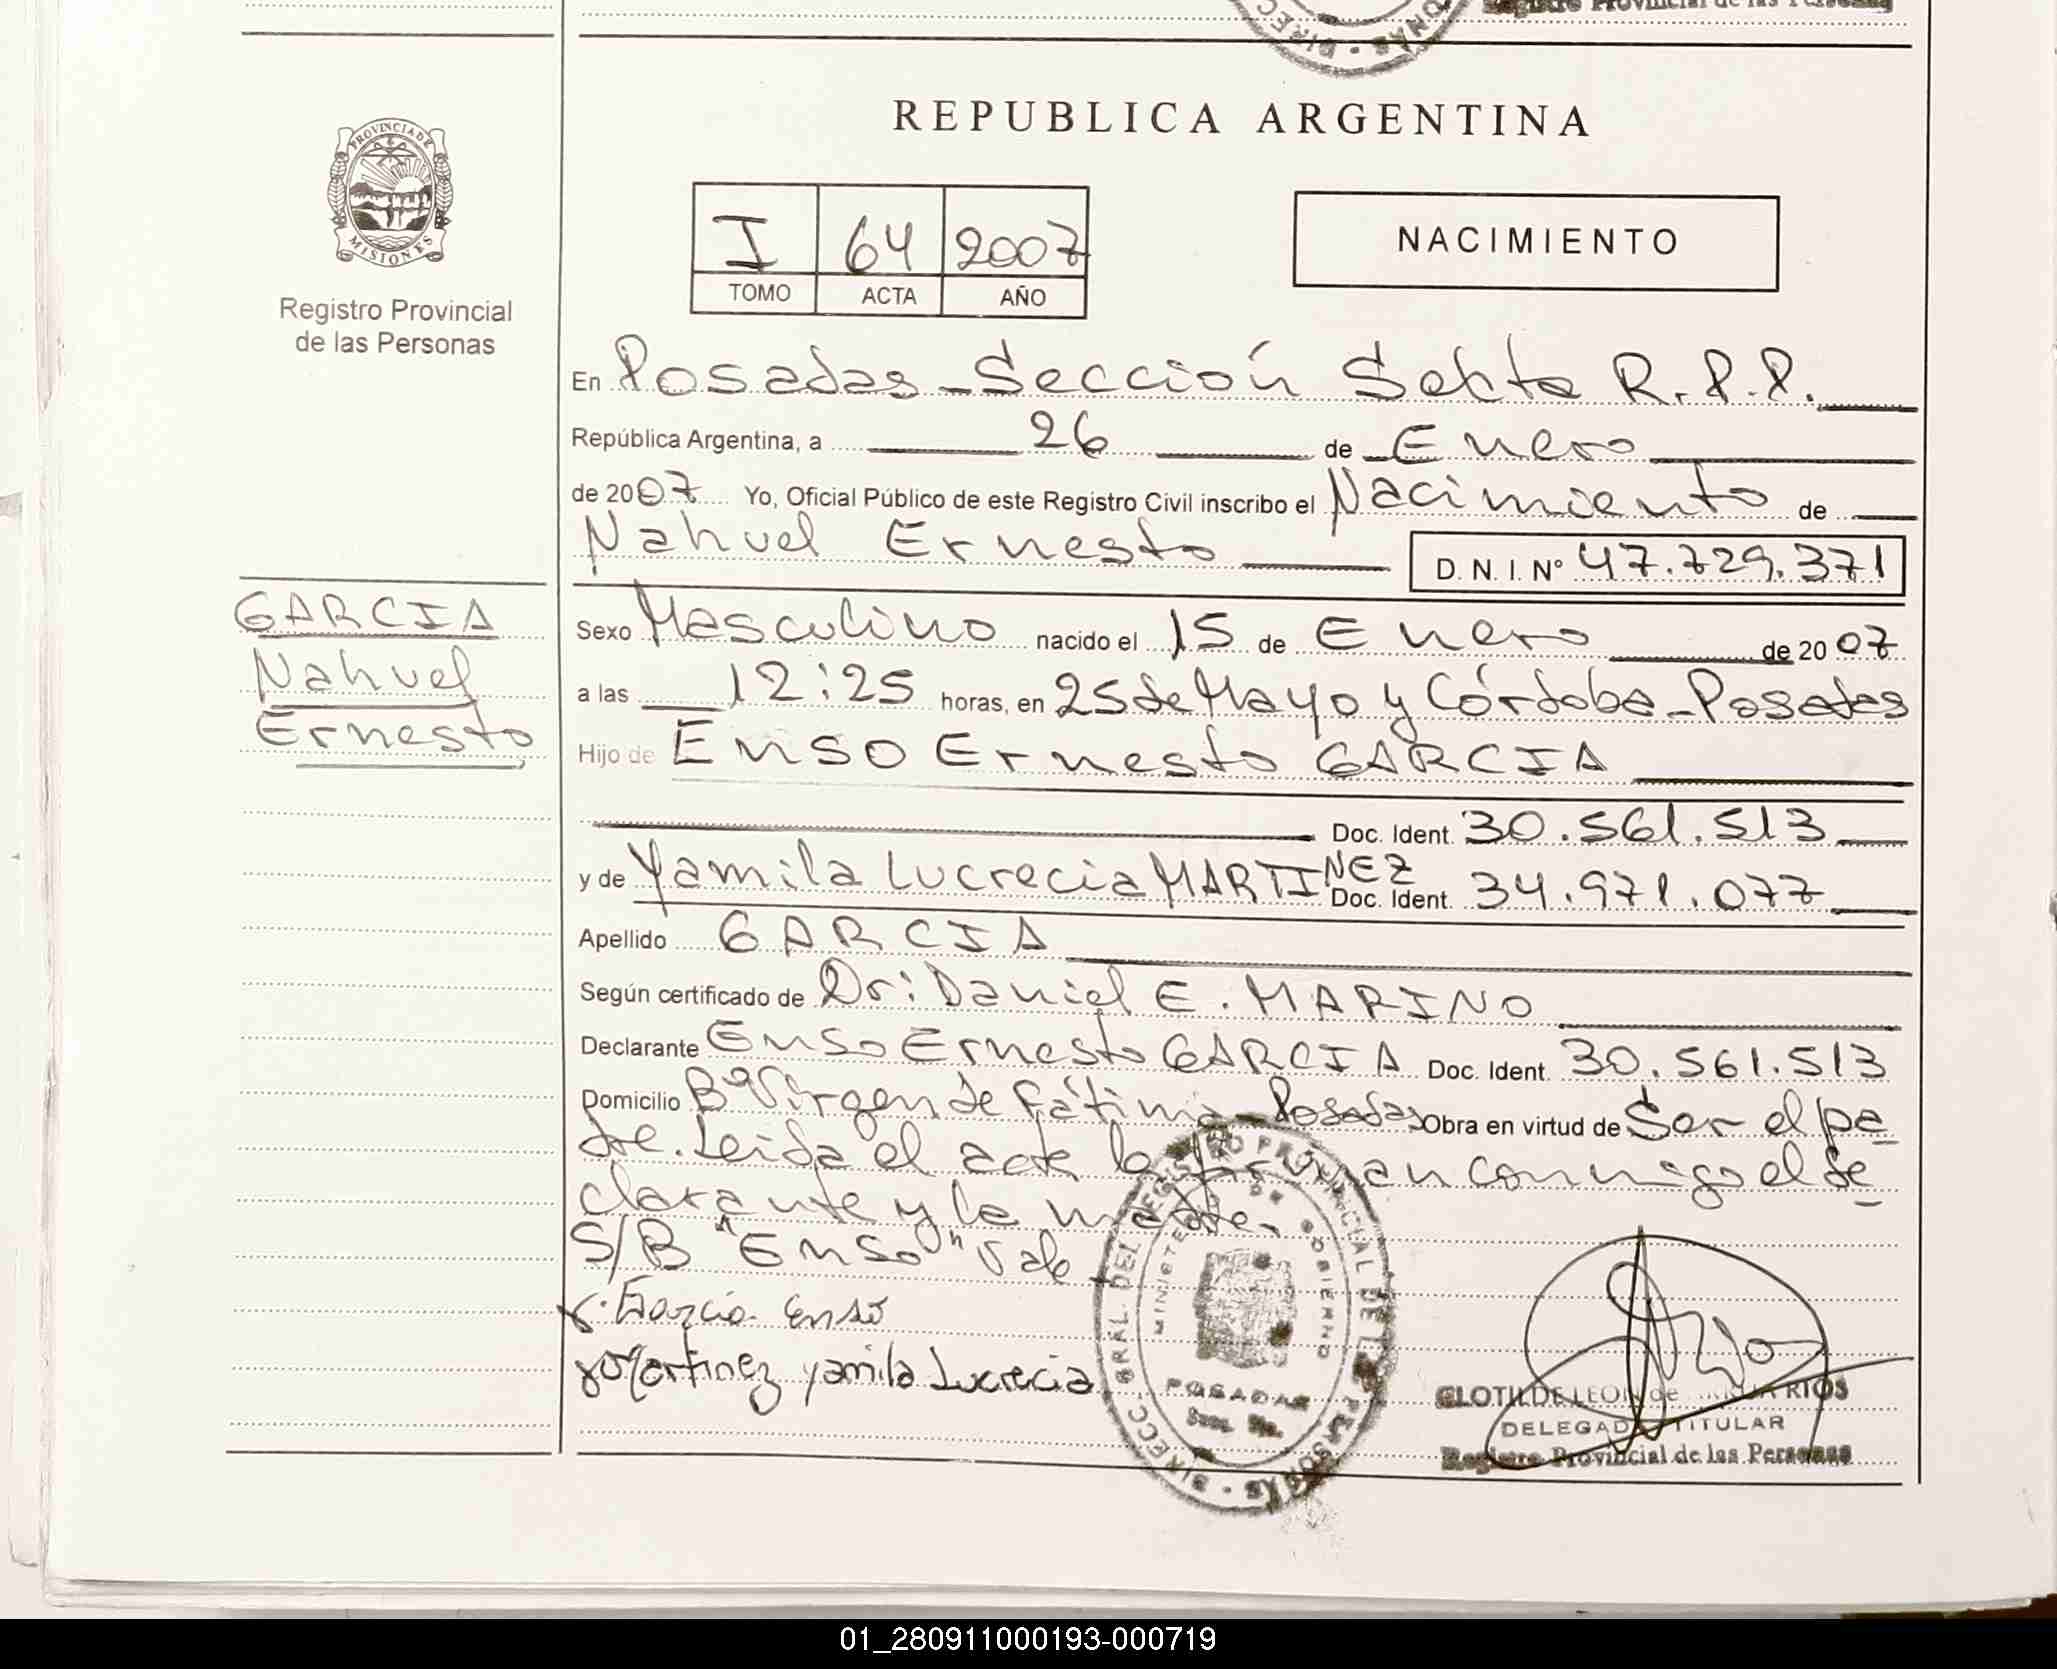 Registro Provincial de las Personas
REPUBLICA ARGENTINA
PROVINCIA DE
MISIONES
Registro Provincial
de las Personas
I 64 2007
TOMO ACTA AÑO
NACIMIENTO
En Posadas - Sección Sexta R.P.P.
República Argentina, a 26 de Enero
de 2007 Yo, Oficial Público de este Registro Civil inscribo el Nacimiento de
Nahuel Ernesto D.N.I. Nº 47.729.371
GARCIA
Nahuel
Ernesto
Sexo Masculino nacido el 15 de Enero de 2007
a las 12:25 horas, en 25 de Mayo y Córdoba - Posadas
Hijo de Enso Ernesto GARCIA
Doc. Ident. 30.561.513
y de Yamila Lucrecia MARTINEZ Doc. Ident. 34.971.077
Apellido GARCIA
Según certificado de Dr: Daniel E. MARINO
Declarante Enso Ernesto GARCIA Doc. Ident. 30.561.513
Domicilio Bº Virgen de Fátima - Posadas Obra en virtud de Ser el pa-
dre. Leida el acta la firman conmigo el de-
clarante y la madre.
S/B "Enso" Vale
Garcia Enso
Martinez Yamila Lucrecia
DIRECC. GRAL. DEL REGISTRO PROVINCIAL DE LAS PERSONAS
MINISTERIO DE GOBIERNO
POSADAS
CLOTILDE LEON de RIOS
DELEGADA TITULAR
Registro Provincial de las Personas
01_280911000193-000719